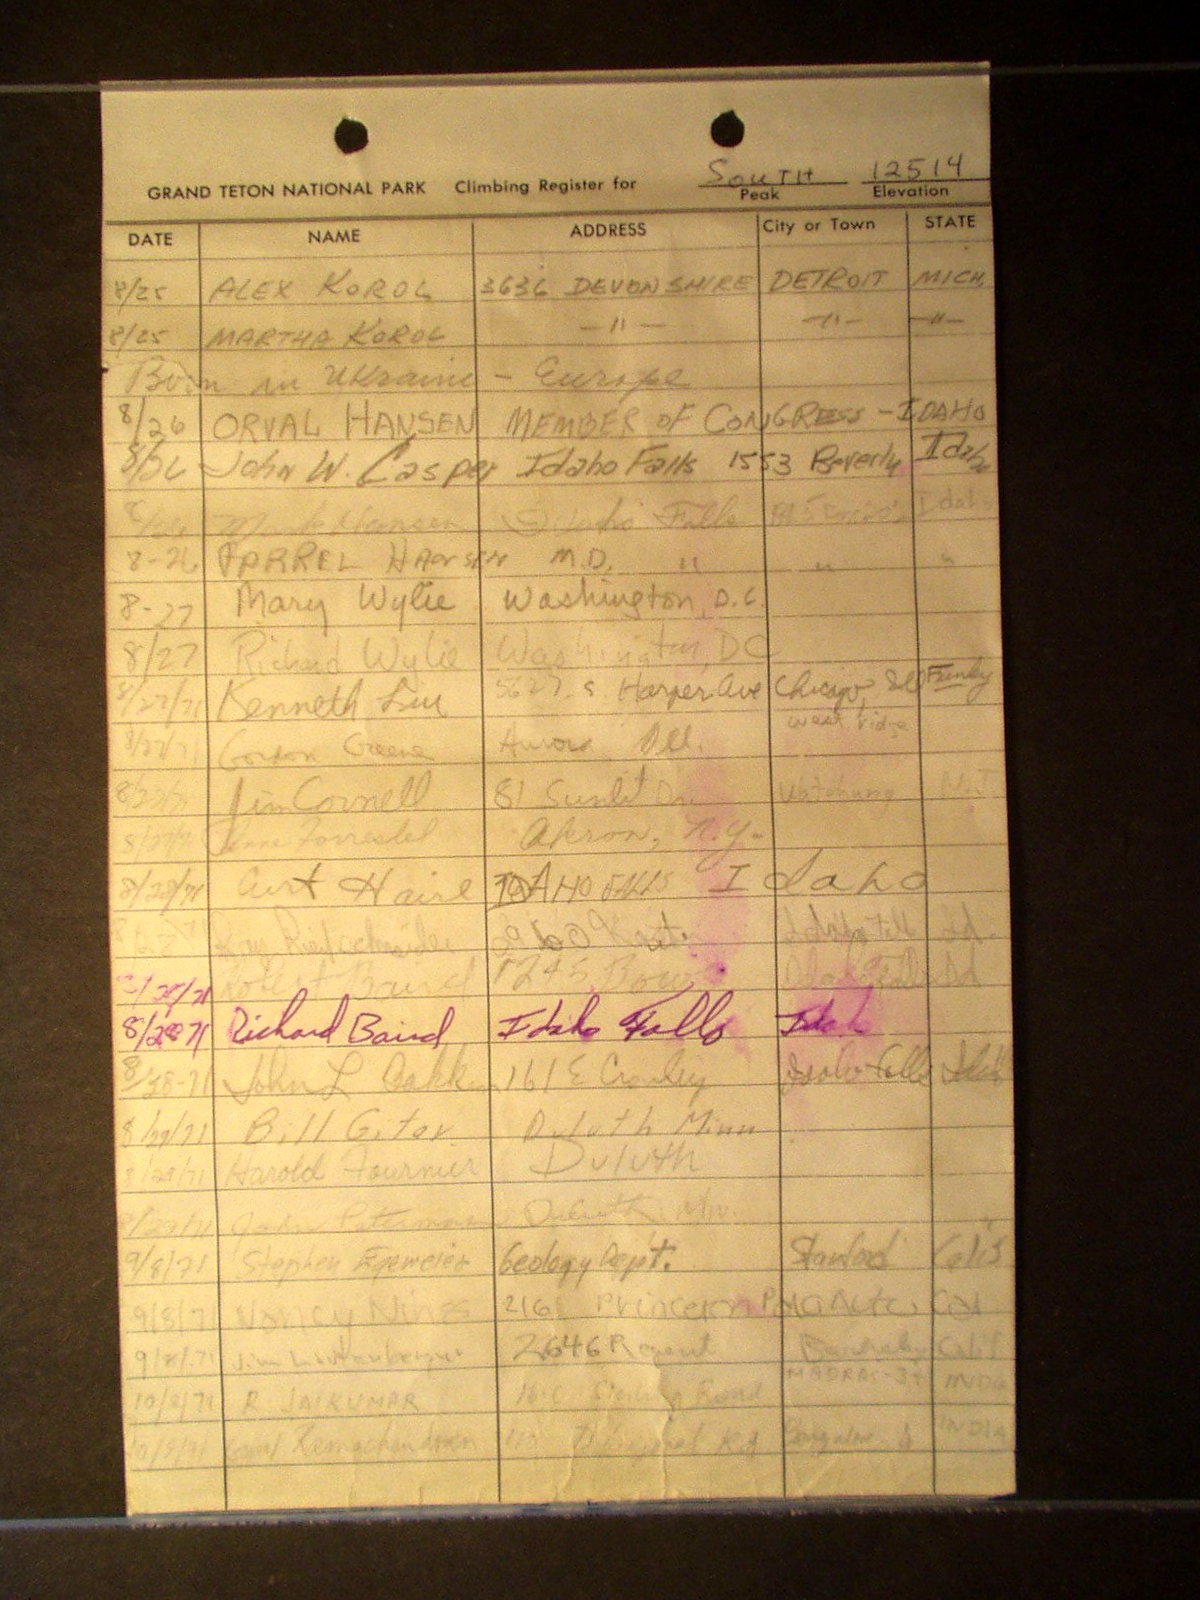 SOUTH 12514
GRAND TETON NATIONAL PARK Climbing Register for Peak Elevation
DATE NAME ADDRESS City or Town STATE
8/25 ALEX KOROL 3636 DEVONSHIRE DETROIT MICH
8/25 MARTHA KOROL —"— —"— —"—
Born in Ukraine - Europe
8/26 ORVAL HANSEN MEMBER OF CONGRESS - IDAHO
8/26 John W. Casper Idaho Falls 1553 Beverly Idaho
Hansen Idaho Falls Idaho
8-26 FARREL HANSEN M.D. " " "
8-27 Mary Wylie Washington, D.C.
8/27 Richard Wylie Washington, DC
8/27/71 Kenneth 5627 S. Harper Ave Chicago Ill
west ridge
8/27/71 Gordon Greene Aurora Ill.
Jim Cornell 81 Sunlit Dr. Watchung N.J.
Forrestel Akron, N.Y.
8/28/71 Curt Haire IDAHO FALLS Idaho
Robert Baird 1245
8/28/71 Richard Baird Idaho Falls Idah
8/28-71 John L 161 E Crowley Idaho Falls
8/29/71 Bill Duluth Minn
8/29/71 Harold Fournier Duluth
John Duluth, Mn.
9/8/71 Stephen Egemeier Geology Dept. Stanford Calif
9/8/71 Nancy 216 Princeton Palo Alto, Cal
9/8/71 Jim 2646 Regent Berkeley Calif
R JAIKUMAR Road MADRAS-34 INDIA
Ramachandran Rd Bangalore INDIA